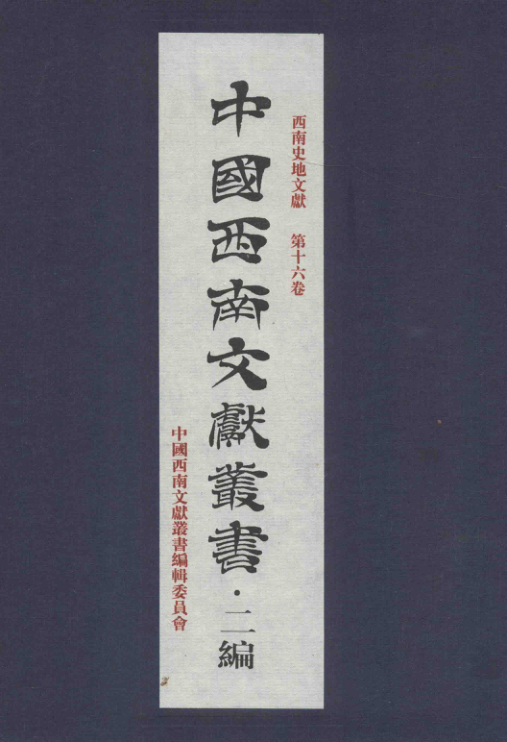 西南史地文獻 第十六卷
中國西南文獻叢書·二編
中國西南文獻叢書編輯委員會